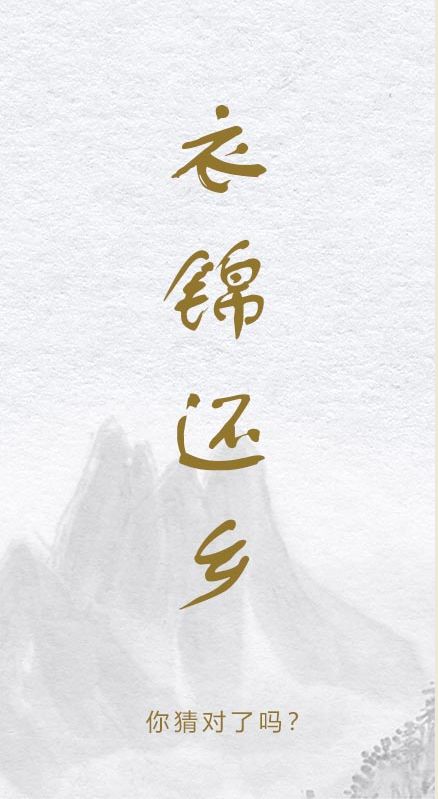 衣锦还乡
你猜对了吗？